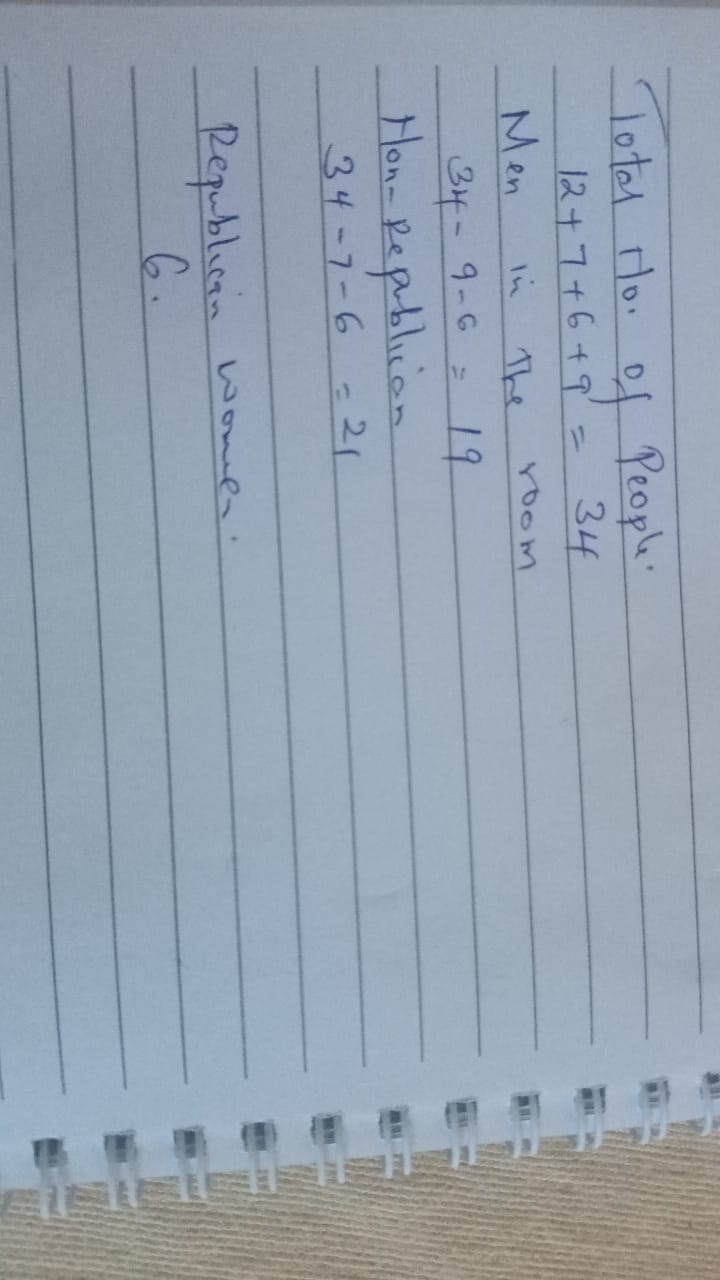 Total No. of People.
12+7+6+9 = 34
Men in The room
34-9-6 = 19
Non-Republican
34-7-6 = 21
Republican women.
6.